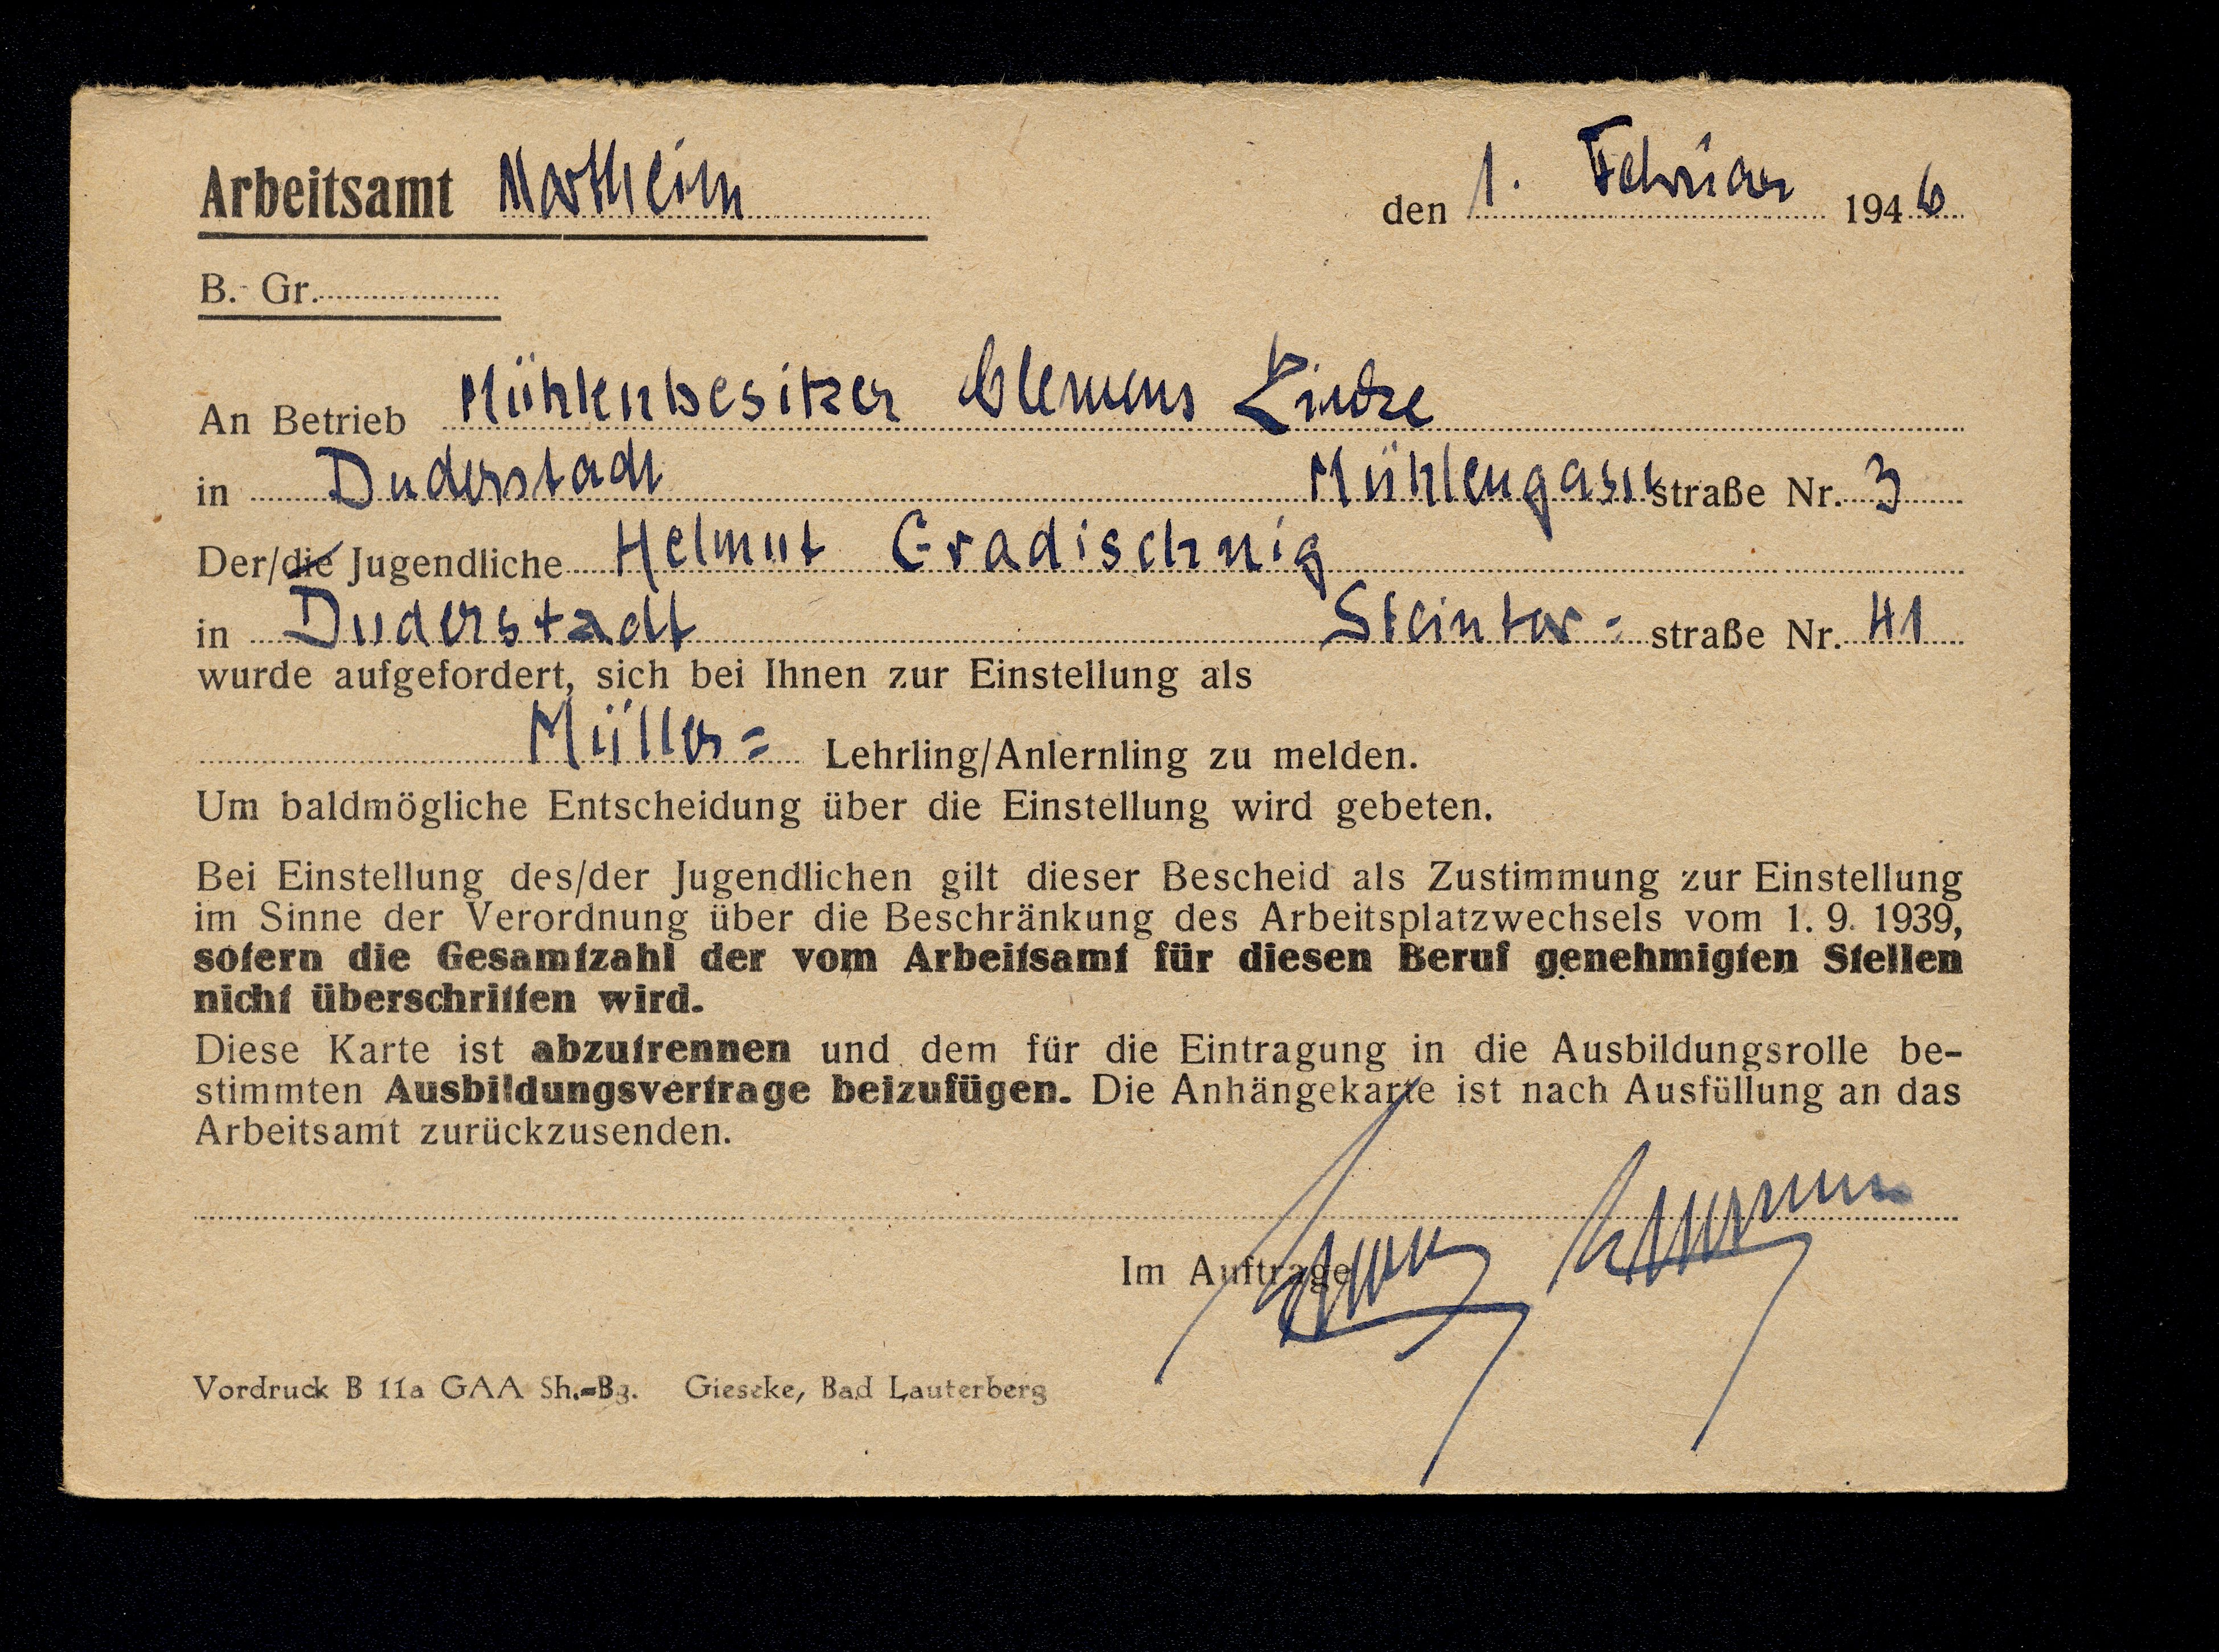 Arbeitsamt Northeim
den 1. Februar 1946
B.- Gr.
An Betrieb Mühlenbesitzer Clemens
in Duderstadt Mühlengasse straße Nr. 3
Der/die Jugendliche Helmut Gradischnig
in Duderstadt Steintor- straße Nr. 41
wurde aufgefordert, sich bei Ihnen zur Einstellung als
Müller= Lehrling/Anlernling zu melden.
Um baldmögliche Entscheidung über die Einstellung wird gebeten.
Bei Einstellung des/der Jugendlichen gilt dieser Bescheid als Zustimmung zur Einstellung
im Sinne der Verordnung über die Beschränkung des Arbeitsplatzwechsels vom 1. 9. 1939,
sofern die Gesamtzahl der vom Arbeitsamt für diesen Beruf genehmigten Stellen
nicht überschritten wird.
Diese Karte ist abzutrennen und dem für die Eintragung in die Ausbildungsrolle be-
stimmten Ausbildungsvertrage beizufügen. Die Anhängekarte ist nach Ausfüllung an das
Arbeitsamt zurückzusenden.
Im Auftrage
Vordruck B 11a GAA Sh.=Bg. Giesecke, Bad Lauterberg